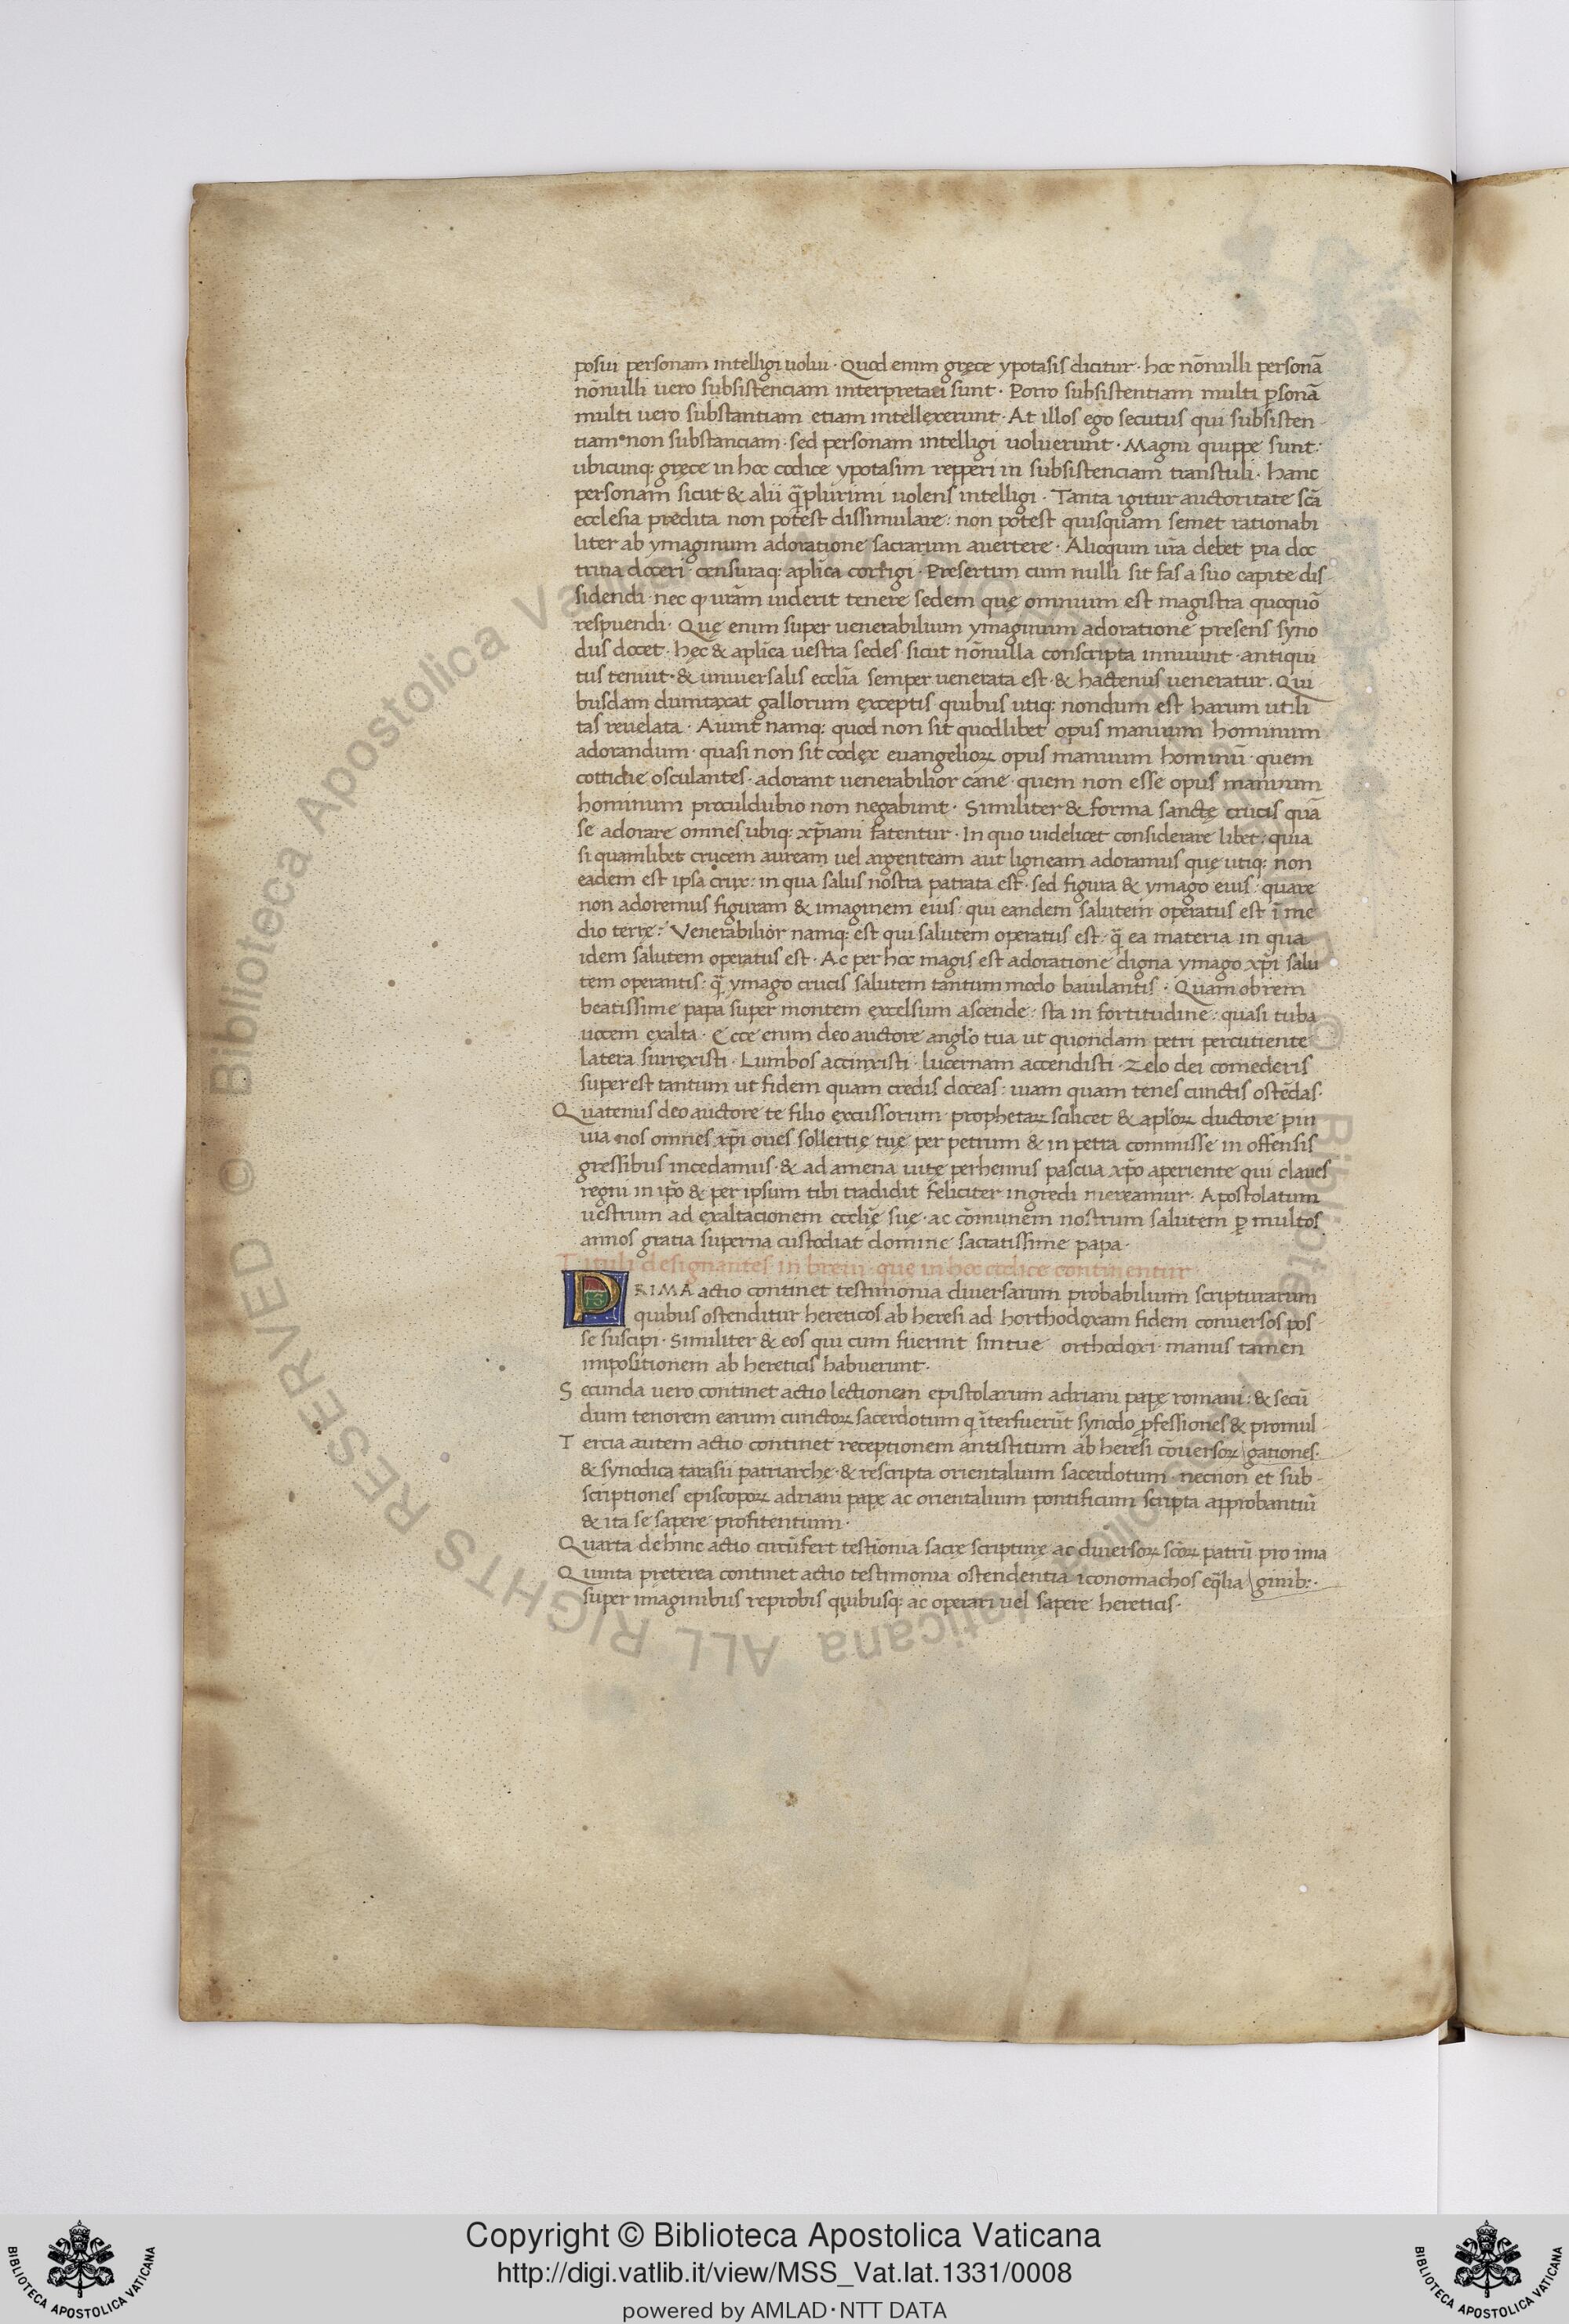 posui personam intelligi uolui · Quod enim gręce ypotasis dicitur · hoc nōnulli personā
nōnulli uero subsistenciam interpretati sunt · Porro subsistentiam multi ꝑsonā
multi uero substantiam etiam intellexerunt · At illos ego secutus qui subsisten
tiam non substanciam · sed personam intelligi uoluerunt · Magni quippe sunt ·
ubicunq: gręce in hoc codice ypotasim repperi in subsistenciam transtuli · hanc
personam sicut & alii q̄ plurimi uolens intelligi · Tanta igitur auctoritate scā
ecclesia predita non potest dissimulare : non potest quisquam semet rationabi
liter ab ymaginum adoratione sacrarum auertere · Alioquin ur̄a debet pia doc
trina doceri · censuraq: aplīca corrigi · Presertim cum nulli sit fas a suo capite dis
sidendi · nec ꝙ ur̄am uiderit tenere sedem quę omnium est magistra quoquō
respuendi · Quę enim super uenerabilium ymaginum adoratione presens syno
dus docet · hęc & aplīca uestra sedes · sicut nōnulla conscripta innuunt · antiqui
tus tenuit · & uniuersalis ecclīa semper uenerata est · & hactenus ueneratur · Qui
busdam dumtaxat gallorum exceptis quibus utiq: nondum est harum utili
tas reuelata · Aiunt namq: quod non sit quodlibet opus manuum hominum
adorandum · quasi non sit codex euangelioꝝ opus manuum hominū · quem
cottidie osculantes · adorant uenerabilior cane · quem non esse opus manuum
hominum proculdubio non negabunt · Similiter & forma sanctę crucis quā
se adorare omnes ubiq: xp̄iani fatentur · In quo uidelicet considerare libet : quia
si quamlibet crucem auream uel argenteam aut ligneam adoramus quę utiq: non
eadem est ipsa crux : in qua salus nostra patrata est · sed figura & ymago eius : quare
non adoremus figuram & imaginem eius : qui eandem salutem operatus est ī me
dio terrę : Venerabilior namq: est qui salutem operatus est : q̄ ea materia in qua
idem salutem operatus est · Ac per hoc magis est adoratione digna ymago xp̄i salu
tem operantis : q̄ ymago crucis salutem tantummodo baiulantis · Quam obrem
beatissime papa super montem excelsum ascende : sta in fortitudine : quasi tuba
uocem exalta · Ecce enim deo auctore angl̄o tua ut quondam petri percutiente
latera surrexisti · Lumbos accinxisti · lucernam accendisti · zelo dei comederis
superest tantum ut fidem quam credis doceas : uiam quam tenes cunctis ostēdas ·
Quatenus deo auctore te filio excussorum · prophetaꝝ scilicet & apl̄oꝝ ductore pui
uia nos omnes xp̄i oues sollertię tuę per petrum & in petra commisse in offensis
gressibus incedamus · & ad amena uitę perhennis pascua xp̄o aperiente qui claues
regni in ip̄o & per ipsum tibi tradidit feliciter ingredi mereamur · Apostolatum
uestrum ad exaltacionem ecclīę suę · ac cōmunem nostrum salutem ꝑ multos
annos gratia superna custodiat domine sacratissime papa ·
Tituli designantes in breui · quę in hoc codice continentur
PRIMA actio continet testimonia diuersarum probabilium scripturarum
quibus ostenditur hereticos ab heresi ad horthodoxam fidem conuersos pos
se suscipi · Similiter & eos qui cum fuerint sintue orthodoxi · manus tamen
impositionem ab hereticis habuerunt ·
Secunda uero continet actio lectionem epistolarum adriani papę romani : & secū
dum tenorem earum cunctoꝝ sacerdotum q īterfuerūt synodo ꝓfessiones & promul
Tercia autem actio continet receptionem antistitum ab heresi cōuersoꝝ gationes ·
& synodica tarasii patriarchę · & rescripta orientalium sacerdotum · necnon et sub
scriptiones episcopoꝝ adriani papę ac orientalium pontificum scripta approbantiū
& ita se sapere profitentium ·
Quarta dehinc actio circūfert testīonia sacrę scripturę ac diuersoꝝ scōꝝ patrū pro ima
Quinta pręterea continet actio testimonia ostendentia iconomachos eq̄lia ginib: ·
super imaginibus reprobis quibusq: ac operari uel sapere hereticis ·
Copyright © Biblioteca Apostolica Vaticana
http://digi.vatlib.it/view/MSS_Vat.lat.1331/0008
powered by AMLAD·NTT DATA
BIBLIOTECA APOSTOLICA VATICANA
BIBLIOTECA APOSTOLICA VATICANA